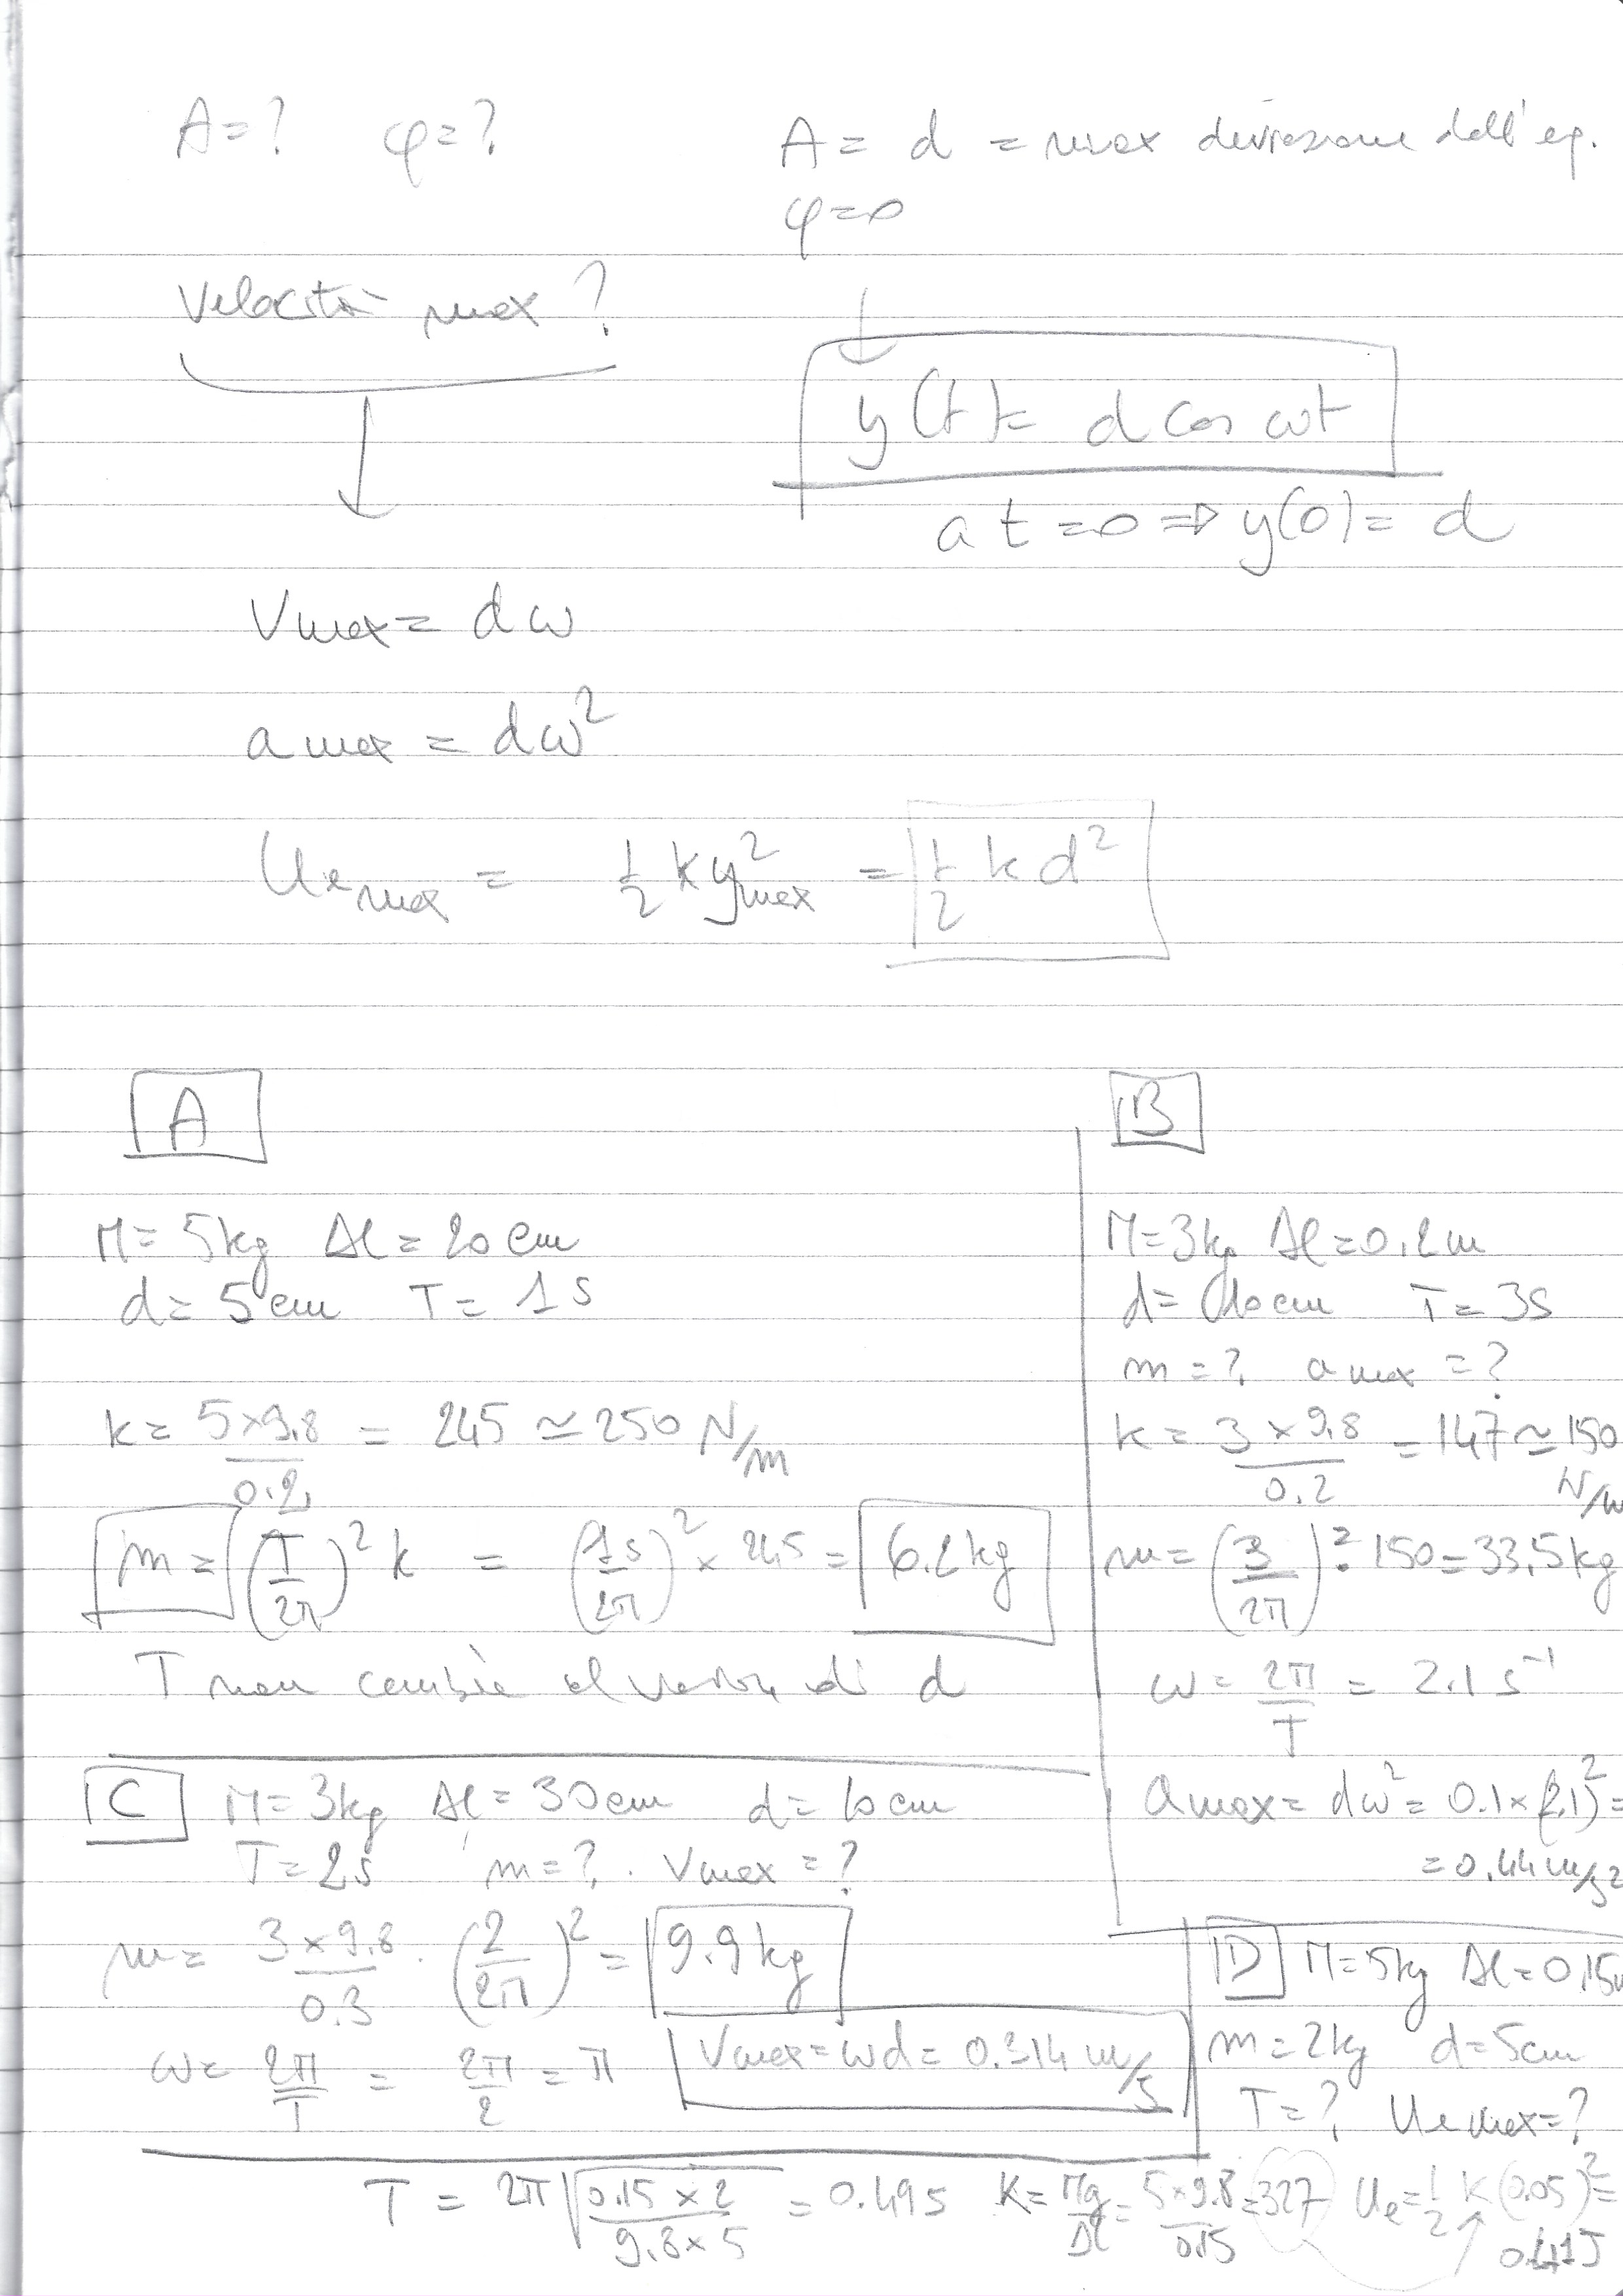 A=? φ=? A = d = max deviazione dall'eq.
φ=0
Velocità max ?
y(t)= d cos ωt
a t=0 ⇒ y(0)= d
Vmax = dω
a max = dω²
Ue max = 1/2 k y²max = 1/2 k d²
A
M= 5kg Δl = 20 cm
d= 5 cm T= 1 s
k= 5×9.8/0.2 = 245 ≃ 250 N/m
m = (T/2π)² k = (1s/2π)² × 245 = 6.2 kg
T non cambia al variare di d
B
M=3kg Δl=0.2m
d= 10cm T=3s
m=? a max =?
k= 3×9.8/0.2 = 147 ≃ 150 N/m
m= (3/2π)² · 150 = 33.5 kg
ω= 2π/T = 2.1 s⁻¹
a max = dω² = 0.1×(2.1)² =
= 0.44 m/s²
C M= 3kg Δl = 30cm d= 10cm
T= 2s m=? . Vmax =?
m= 3×9.8/0.3 · (2/2π)² = 9.9 kg
ω= 2π/T = 2π/2 = π Vmax = ωd = 0.314 m/s
D M=5kg Δl=0.15m
m=2kg d=5cm
T=? Ue max=?
T = 2π√(0.15×2/9.8×5) = 0.49s K= Mg/Δl = 5×9.8/0.15 = 327 Ue= 1/2 K (0.05)² =
0.41J